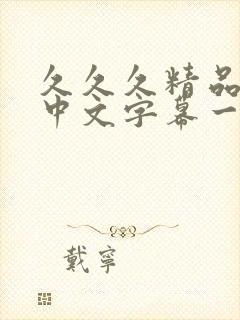 久久久精品
中文字幕一
戴寧